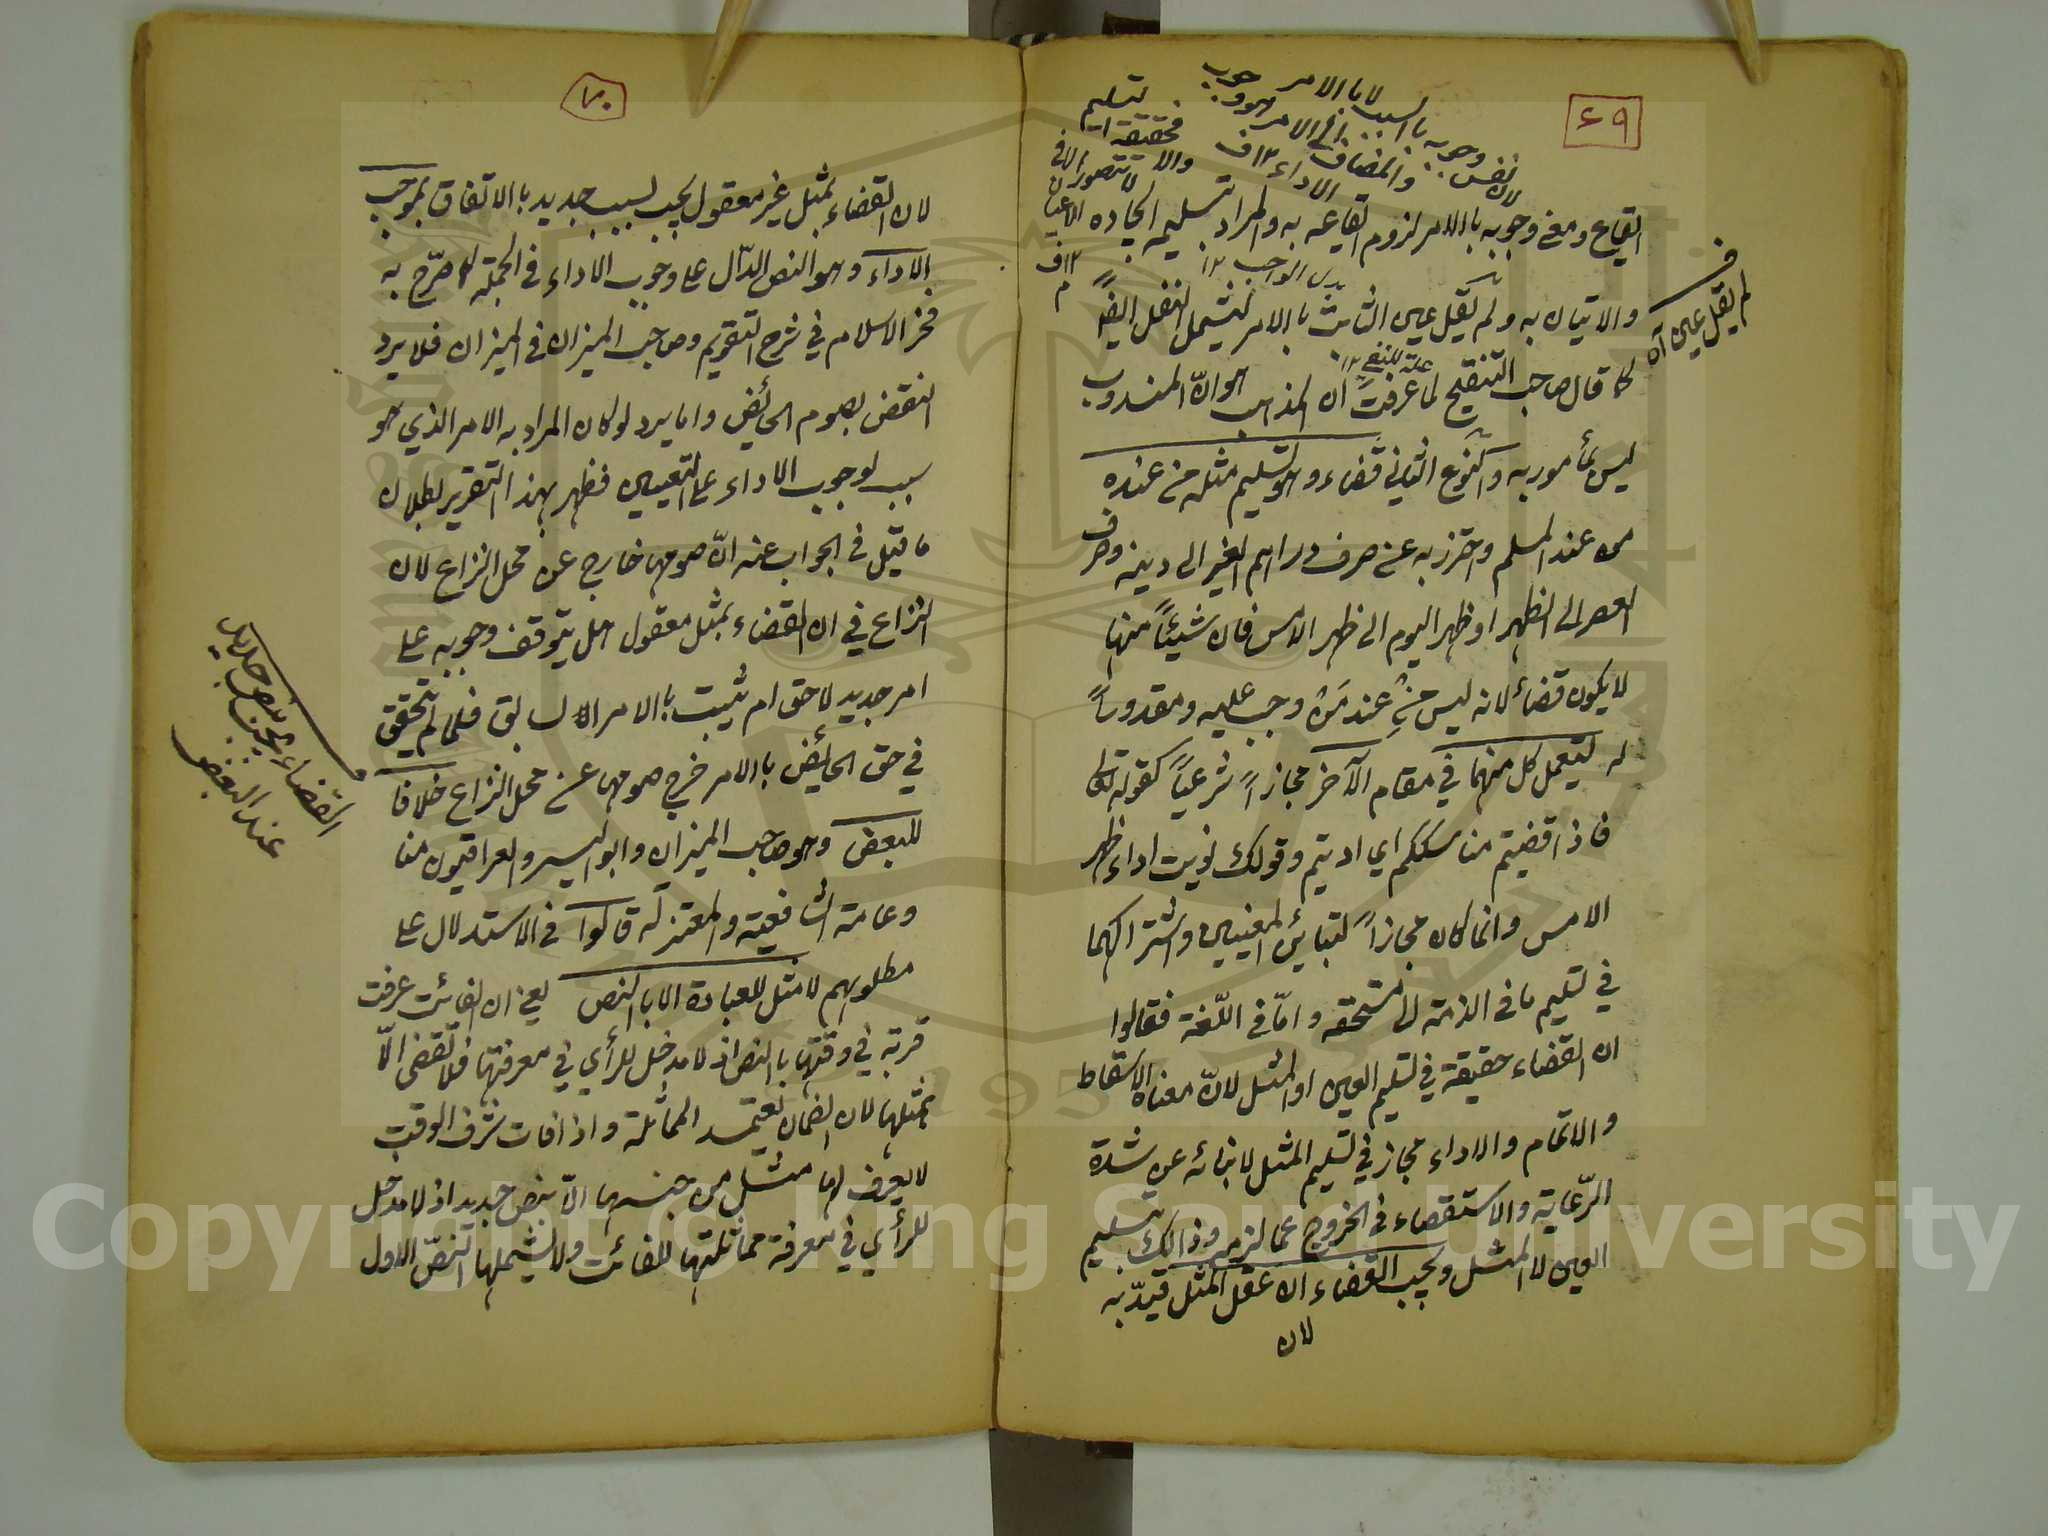 ٤٩
لان نفس وجوبه بالسبب لا بالامر
والمضاف الى الامر هو وجوب
الاداء ١٢ ف
والا فحقيقة التسليم
لا تتصور الا في
الاعيان
١٢ ف
ايقاع ومعنى وجوبه بالامر لزوم ايقاعه به والمراد بتسليمه ايجاده
اى الواجب ١٢
والاتيان به ولم يقل عين الثابت بالامر ليشمل النفل ايضاً
لم يقل عين آه
علة للنفي ١٢
كما قال صاحب التنقيح لما عرفت ان المذهب هو انّ المندوب
ليس بمأمور به والنوع الثاني قضاء وهو تسليم مثله من عنده
من عند المسلم واحترز به عن صرف دراهم الغير الى دينه وصرف
العصر الى الظهر او ظهر اليوم الى ظهر الامس فان شيئاً منها
لا يكون قضاء لانه ليس من عند من وجب عليه ومقدوراً
له يستعمل كل منهما في مقام الآخر مجازاً شرعياً كقوله تعالى
فاذا قضيتم مناسككم اي اديتم وقولك نويت اداء ظهر
الامس وانما كان مجازاً لتباين المعنيين واشتراكهما
في تسليم ما في الذمة الى مستحقه وامّا في اللّغة فقالوا
ان القضاء حقيقة في تسليم العين او المثل لانّ معناه الاسقاط
والاتمام والاداء مجاز في تسليم المثل لانبائه عن شدة
الرّعاية والاستقصاء في الخروج عما لزمه وذالك بتسليم
العين لا المثل ويجب القضاء ان عقل المثل قيّد به
لان
٧٠
لان القضاء بمثل غير معقول يجب بسبب جديد بالاتفاق بموجب
الاداء وهو النص الدّال على وجوب الاداء في الجملة كما صرّح به
فخر الاسلام في شرح التقويم وصاحب الميزان في الميزان فلا يرد
النقض بصوم الحائض وانما يرد لو كان المراد به الامر الذي هو
سبب لوجوب الاداء على التعيين فظهر بهذا التقرير بطلان
ما قيل في الجواب عنه انّ صومها خارج عن محل النزاع لان
النزاع في ان القضاء بمثل معقول هل يتوقف وجوبه على
امر جديد لاحق ام يثبت بالامر السابق فلما لم يتحقق
في حق الحائض بالامر خرج صومها عن محل النزاع خلافا
للبعض وهو صاحب الميزان وابو اليسر والعراقيون منا
وعامة الشافعية والمعتزلة قالوا في الاستدلال على
مطلوبهم لا مثل للعبادة الا بالنص يعني ان الفائت عرفت
قربة في وقتها بالنص اذ لا مدخل للرأي في معرفتها فلا تقضى الّا
بمثلها لان الضمان يعتمد المماثلة واذا فات شرف الوقت
لا يعرف لها مثل من جنسها الّا بنص جديد اذ لا مدخل
للرأي في معرفة مماثلتها للفائت ولا يشملها النصّ الاول
القضاء يجب بنص جديد
عند البعض